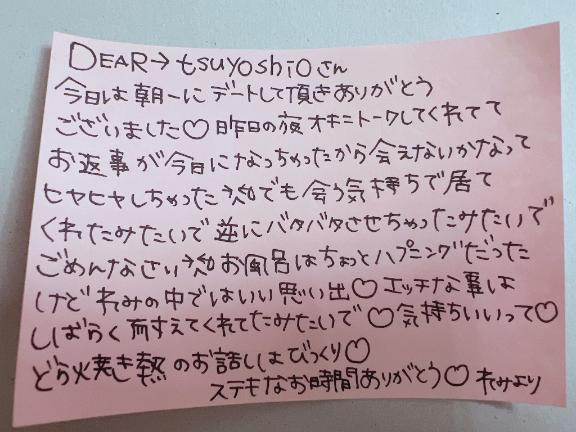 DEAR→tsuyoshioさん
今日は朝一にデートして頂きありがとう
ございました♡昨日の夜オキニトークしてくれてて
お返事が今日になっちゃったから会えないかなって
ヒヤヒヤしちゃった でも会う気持ちで居て
くれたみたいで逆にバタバタさせちゃったみたいで
ごめんなさい お風呂はちょっとハプニングだった
けどれみの中ではいい思い出♡エッチな事は
しばらく えてくれてたみたいで♡気持ちいいって♡
どら焼き のお話しはびっくり♡
ステキなお時間ありがとう♡れみより